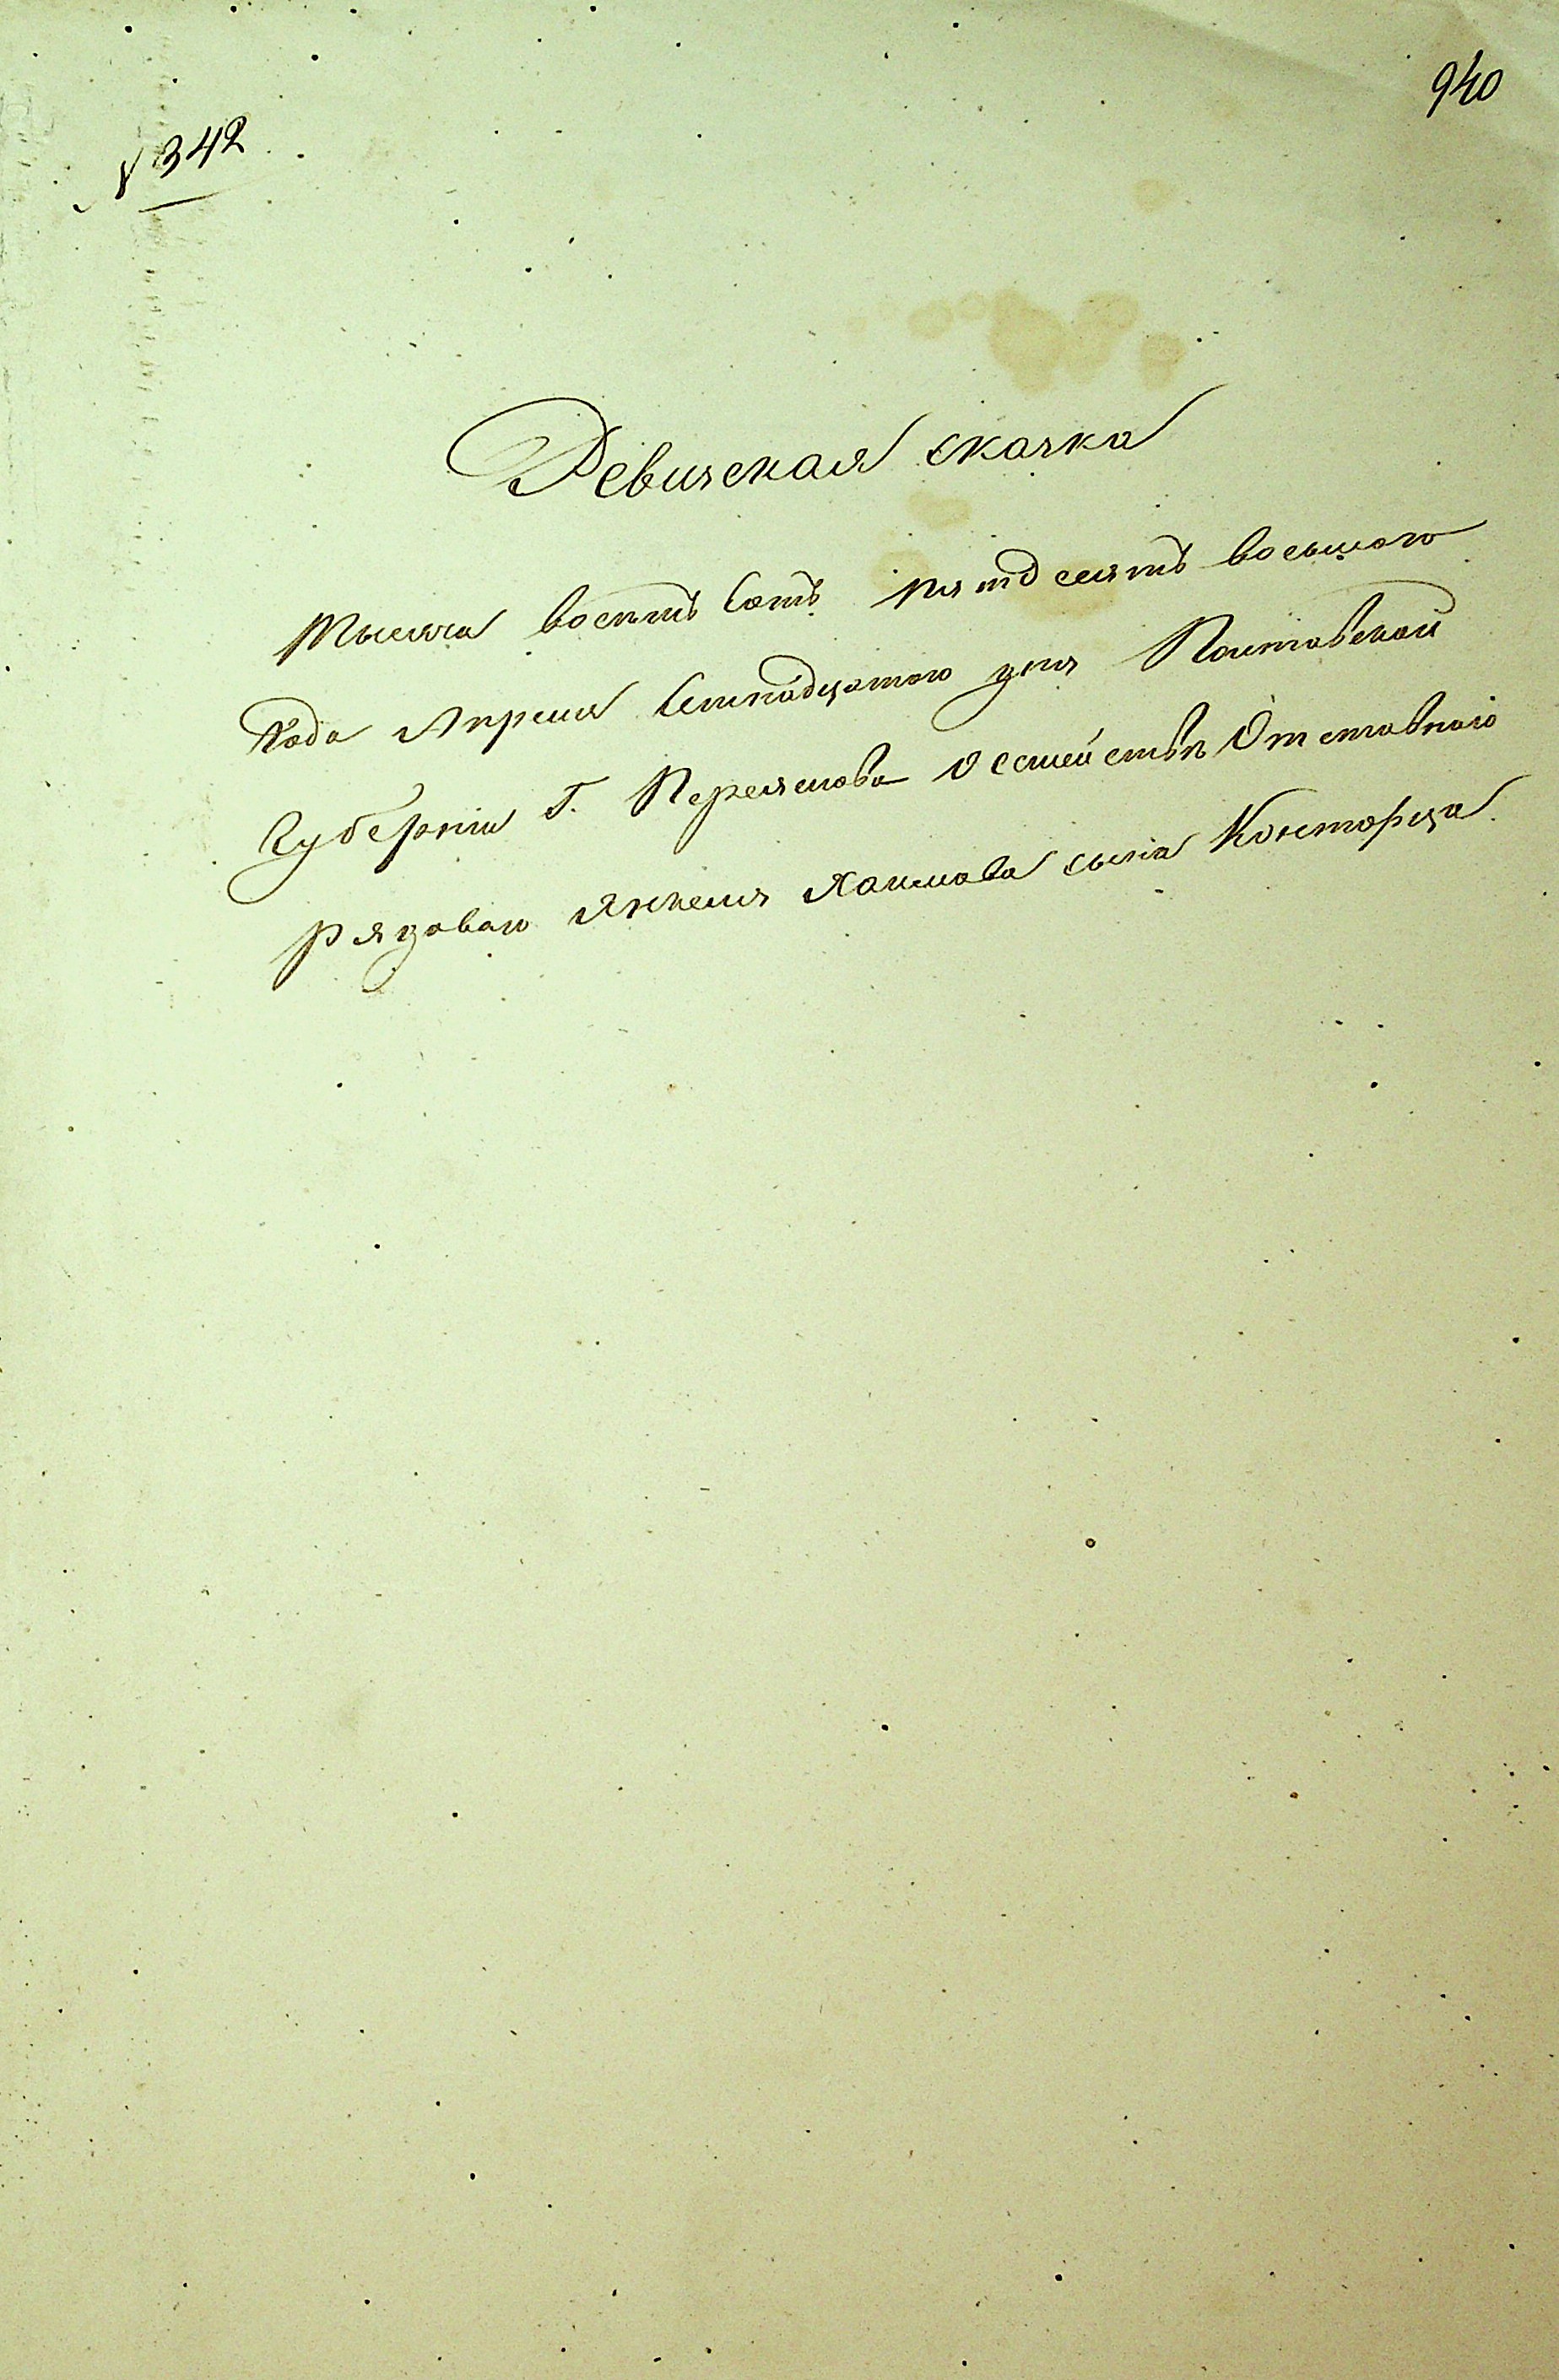 940
№ 342
Ревизская сказка
Тысяча восемь сотъ пятдесятъ восьмого
Года Апреля Семнадцатого дня Полтавской
Губерніи Г. Переяслова О семействѣ Отставного
рядового Янкеля Хаимова сына Конторца